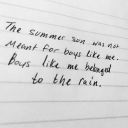 The summer sun was not
meant for boys like me.
Boys like me belonged
to the rain.